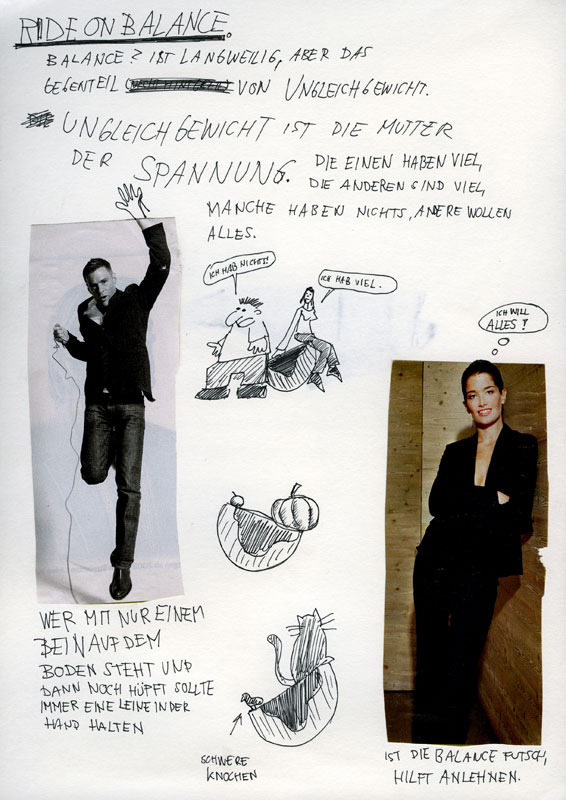 RIDE ON BALANCE.
BALANCE? IST LANGWEILIG, ABER DAS
GEGENTEIL VON UNGLEICHGEWICHT.
UNGLEICHGEWICHT IST DIE MUTTER
DER SPANNUNG. DIE EINEN HABEN VIEL,
DIE ANDEREN SIND VIEL,
MANCHE HABEN NICHTS, ANDERE WOLLEN
ALLES.
ICH HAB NICHTS!
ICH HAB VIEL.
ICH WILL
ALLES!
WER MIT NUR EINEM
BEIN AUF DEM
BODEN STEHT UND
DANN NOCH HÜPFT SOLLTE
IMMER EINE LEINE IN DER
HAND HALTEN
SCHWERE
KNOCHEN
IST DIE BALANCE FUTSCH,
HILFT ANLEHNEN.